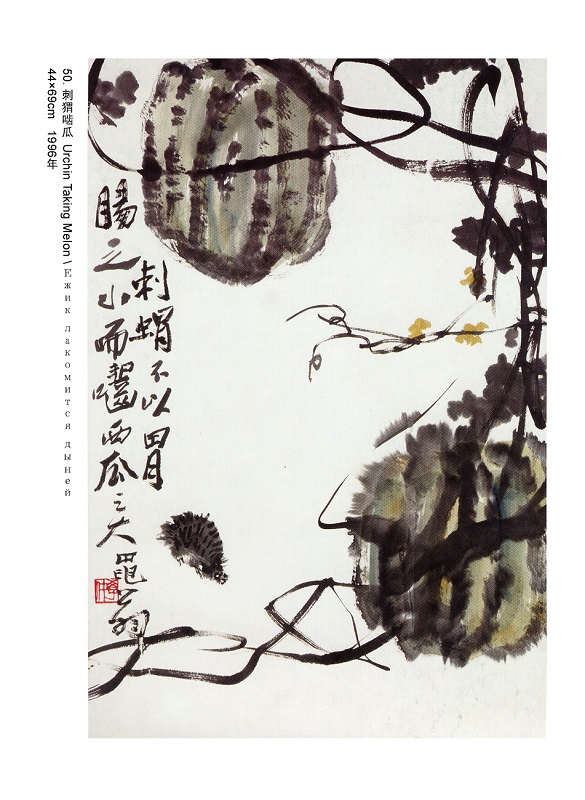 50. 刺猬啮瓜 Urchin Taking Melon \ Ежик лакомится дыней
44×69cm 1996年
刺蝟不以胃
腸之小而囓西瓜之大